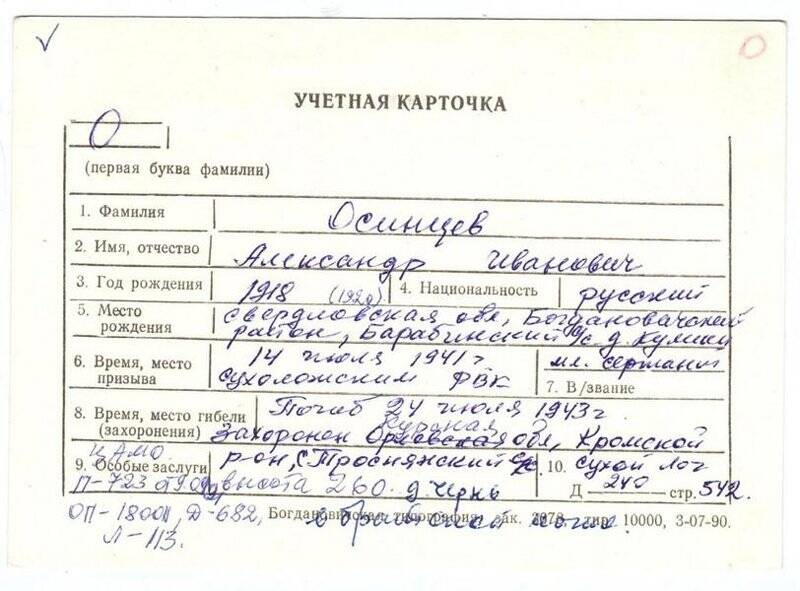 УЧЕТНАЯ КАРТОЧКА
О
(первая буква фамилии)
1. Фамилия Осинцев
2. Имя, отчество Александр Иванович
3. Год рождения 1918 4. Национальность русский
5. Место рождения Свердловская обл, Богдановичский район, Барабинский с/с д. Кулики
6. Время, место призыва 14 июля 1941 г Сухоложским РВК
мл. сержант
7. В/звание
8. Время, место гибели (захоронения) Погиб 24 июля 1943 г.
Курская
Захоронен Орловская обл, Кромской
р-он, с. Троснянский с/с
9. Особые заслуги
высота 260. д. Чернь
10. Сухой Лог
Д 240 стр. 542.
ЦАМО
П-723
ОП-18001, Д-682,
Л-113.
Богдановичская типография, зак. тир. 10000, 3-07-90.